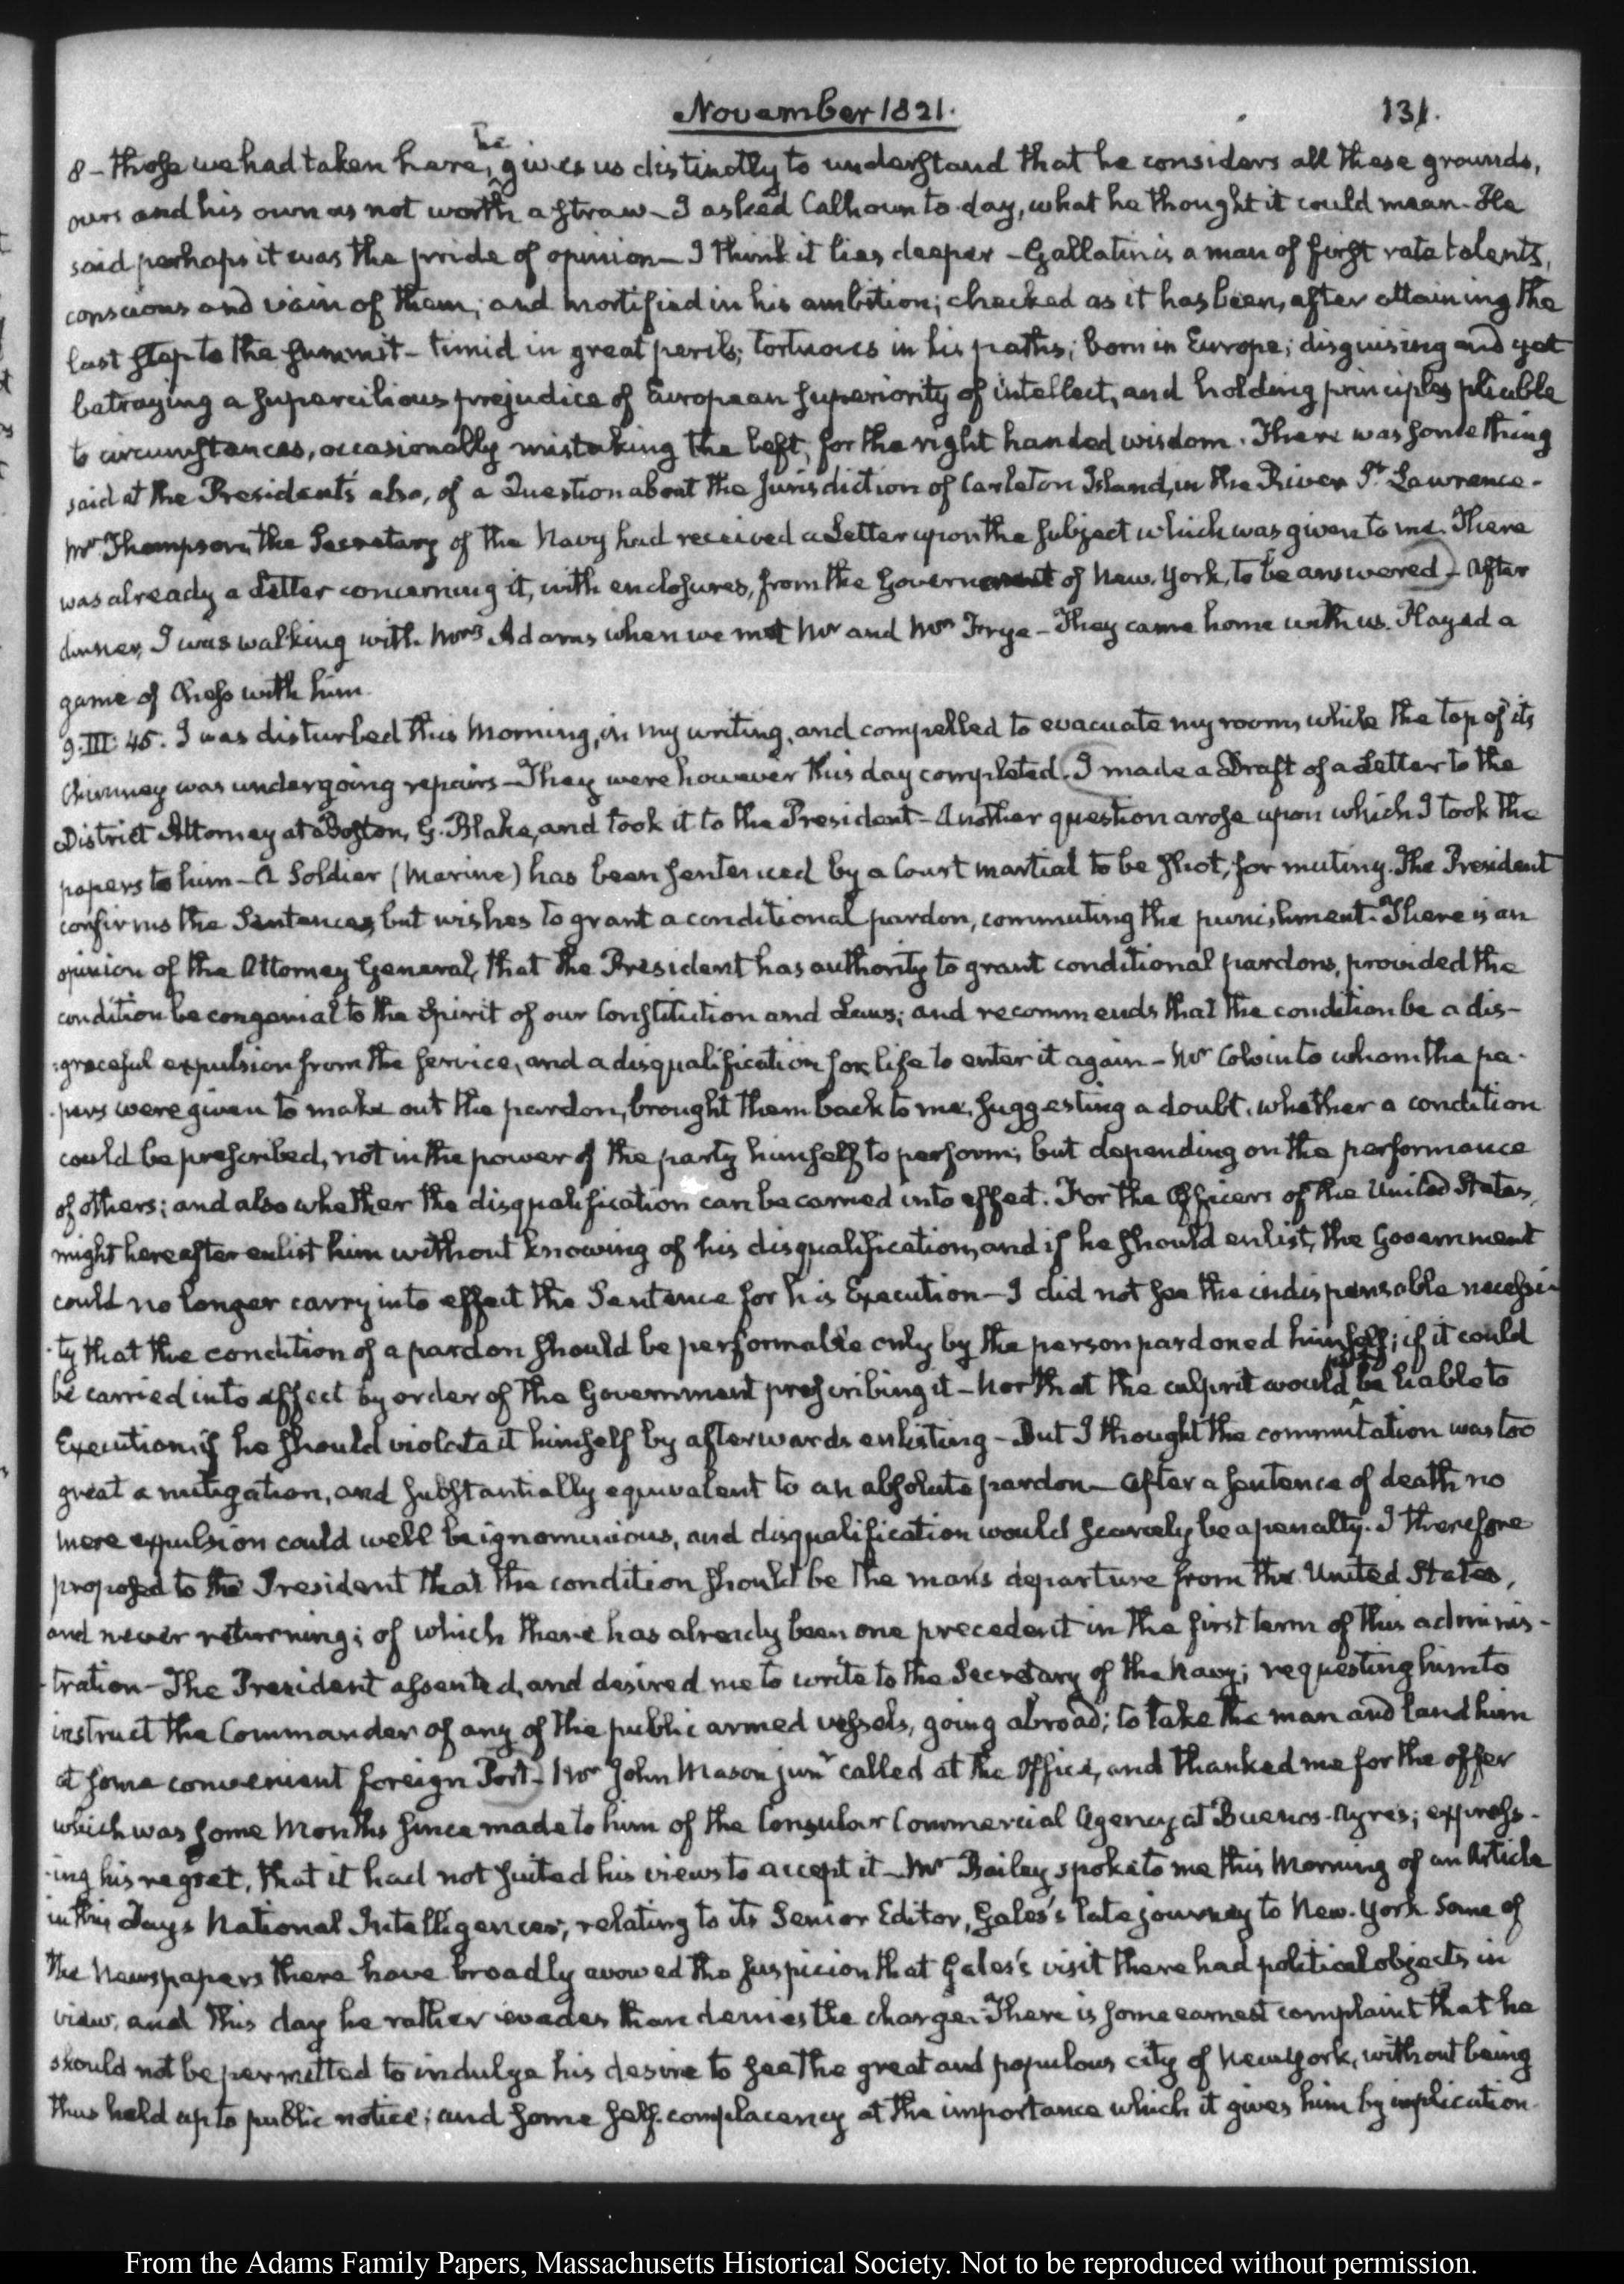 November 1821.
131.
8 - those we had taken here, he gives us distinctly to understand that he considers all these grounds,
ours and his own as not worth a straw - I asked Calhoun to-day, what he thought it could mean. He
said perhaps it was the pride of opinion - I think it lies deeper - Gallatin is a man of first rate talents,
conscious and vain of them; and mortified in his ambition; checked as it has been, after attaining the
last step to the summit - timid in great perils; tortuous in his paths; born in Europe; disguising and yet
betraying a supercilious prejudice of European superiority of intellect, and holding principles pliable
to circumstances, occasionally mistaking the left, for the right handed wisdom. There was something
said at the President's also, of a Question about the Jurisdiction of Carleton Island, in the River St. Lawrence.
Mr Thompson, the Secretary of the Navy had received a Letter upon the subject which was given to me. There
was already a Letter concerning it, with enclosures, from the Government of New-York, to be answered - After
dinner, I was walking with Mrs Adams when we met Mr and Mrs Frye - They came home with us. Played a
game of Chess with him.
9. III:45. I was disturbed this Morning, in my writing, and compelled to evacuate my room, while the top of its
Chimney was undergoing repairs - They were however this day completed. I made a Draft of a Letter to the
District Attorney at Boston, G. Blake, and took it to the President - Another question arose upon which I took the
papers to him - A Soldier (Marine) has been sentenced by a Court martial to be shot, for mutiny. The President
confirms the Sentence, but wishes to grant a conditional pardon, commuting the punishment. There is an
opinion of the Attorney General, that the President has authority to grant conditional pardons, provided the
condition be congenial to the Spirit of our Constitution and Laws; and recommends that the condition be a dis-
:graceful expulsion from the service, and a disqualification for life to enter it again - Mr Colvin to whom the pa-
:pers were given to make out the pardon, brought them back to me, suggesting a doubt, whether a condition
could be prescribed, not in the power of the party himself to perform; but depending on the performance
of others; and also whether the disqualification can be carried into effect. For the Officers of the United States,
might hereafter enlist him without knowing of his disqualification, and if he should enlist, the Government
could no longer carry into effect the Sentence for his Execution - I did not see the indispensable necessi-
:ty that the condition of a pardon should be performable only by the person pardoned himself; if it could
be carried into effect by order of the Government prescribing it - Nor that the culprit would be liable to
Execution, if he should violate it himself by afterwards enlisting - But I thought the commutation was too
great a mitigation, and substantially equivalent to an absolute pardon - After a sentence of death no
mere expulsion could well be ignominious, and disqualification would scarcely be a penalty. I therefore
proposed to the President that the condition should be the man's departure from the United States,
and never returning; of which there has already been one precedent in the first term of this adminis-
:tration - The President assented, and desired me to write to the Secretary of the Navy; requesting him to
instruct the Commander of any of the public armed vessels, going abroad; to take the man and land him
at some convenient foreign Port - Mr John Mason junr called at the Office, and thanked me for the offer
which was some Months since made to him of the Consular Commercial Agency at Buenos-Ayres; express-
:ing his regret, that it had not suited his views to accept it - Mr Bailey spoke to me this Morning of an Article
in this day's National Intelligencer, relating to its Senior Editor, Gales's late journey to New-York. Some of
the Newspapers there have broadly avowed the suspicion that Gales's visit there had political objects in
view, and this day he rather evades than denies the charge. There is some earnest complaint that he
should not be permitted to indulge his desire to see the great and populous city of New York, without being
thus held up to public notice; and some self-complacency at the importance which it gives him by implication.
From the Adams Family Papers, Massachusetts Historical Society. Not to be reproduced without permission.